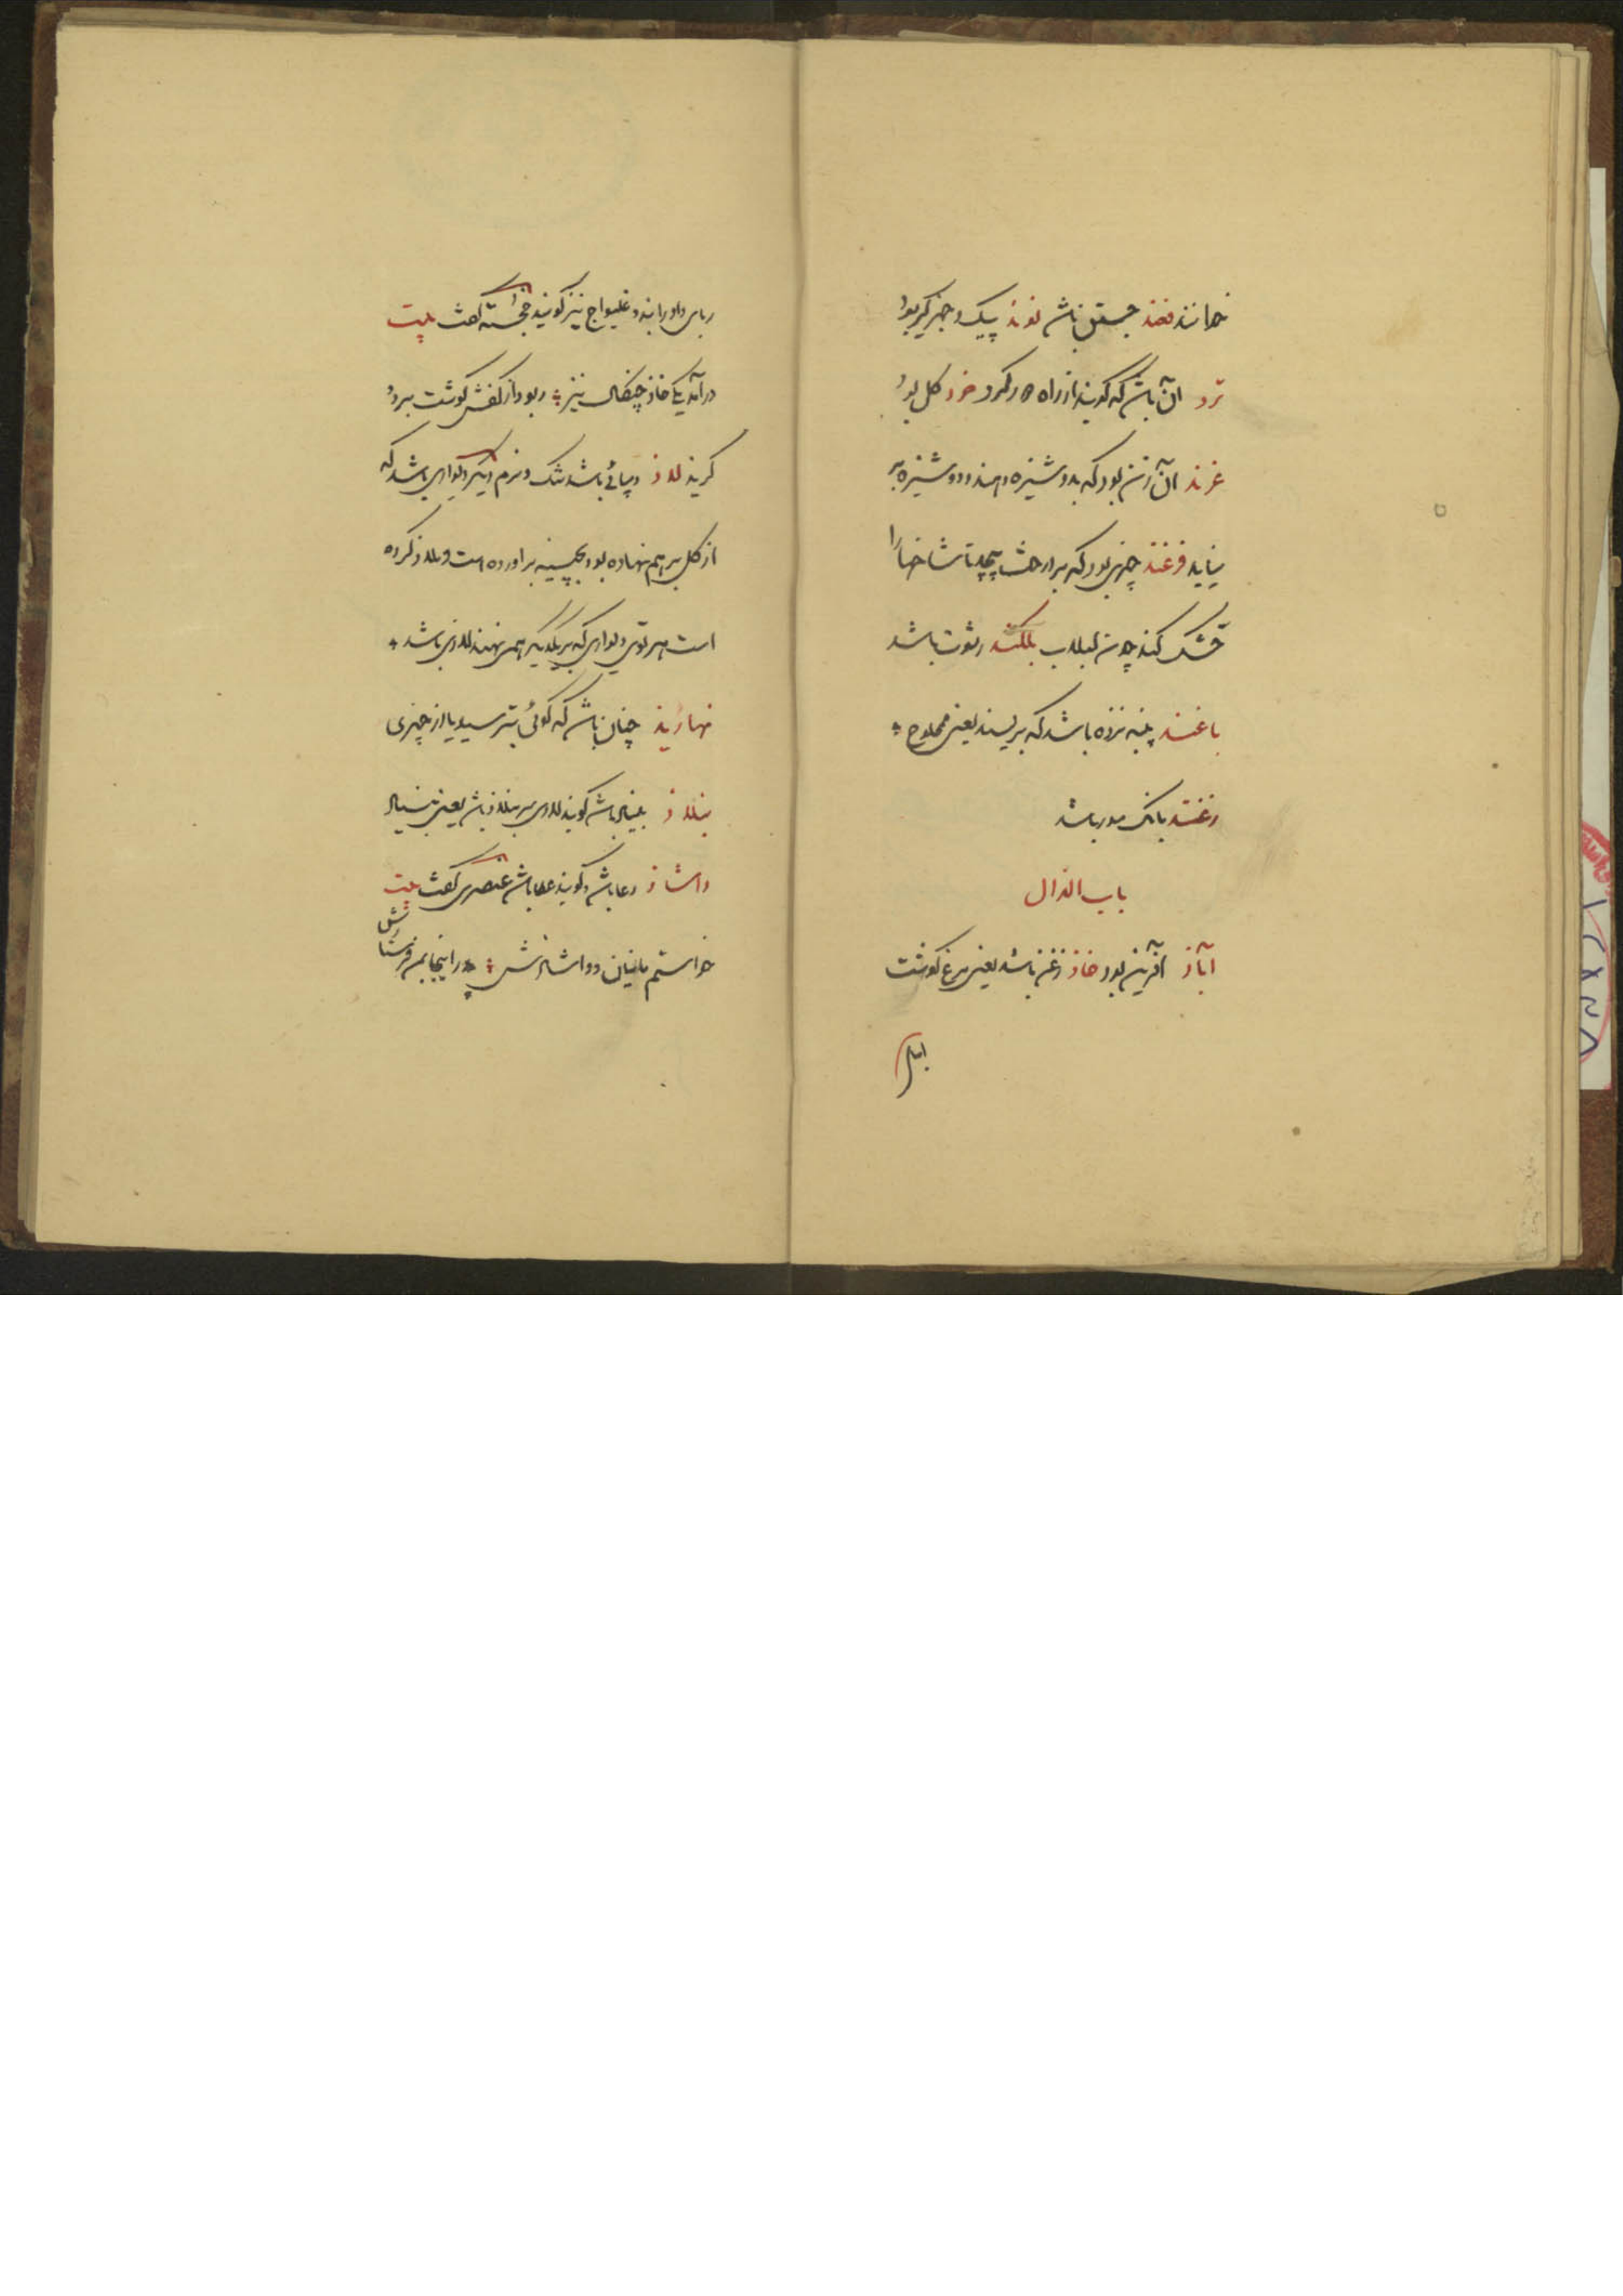 خوانند فغند جستن باشد نوند پیک و خبرگیر بود
نرد آن باشد که گویند از راه در کرد خرد گل بود
غرند آن زن بود که بدوشیزه دهند و دوشیزه
نیاید فرغند چیزی بود که بر درخت پیچد تا شاخها را
خشک کند چون لبلاب بلکند رشوت باشد
باغند پنبه زده باشد که بریسند یعنی محلوج
زغند بانک یوز باشد
باب الذال
آباذ آفرین بود خاذ زغن باشد یعنی مرغ گوشت
ربای و او را بند و غلیواج نیز گویند خجسته گفت بیت
درآمد یکی خاذ چنگال تیز ربود از کفش گوشت ببرد
گریز لاذ دیبائی باشد تنک و نرم دیگر دیواری باشد که
از گل بر هم نهاده بود بچینه برآورده است و بلاذ کرده
است هر توی دیواری که بر یکدیگر همی نهند لاذی باشد
نهازید چنان باشد که گوئی بترسید یا از چیزی
بنلاذ بنیاد باشد گویند لادی بر بنلاذ باشد یعنی بنیاد
داشاذ دعا باشد و گویند عطا باشد عنصری گفت بیت
خواستم با نیان و داشاذش پدر اینجا بمن فرستادش